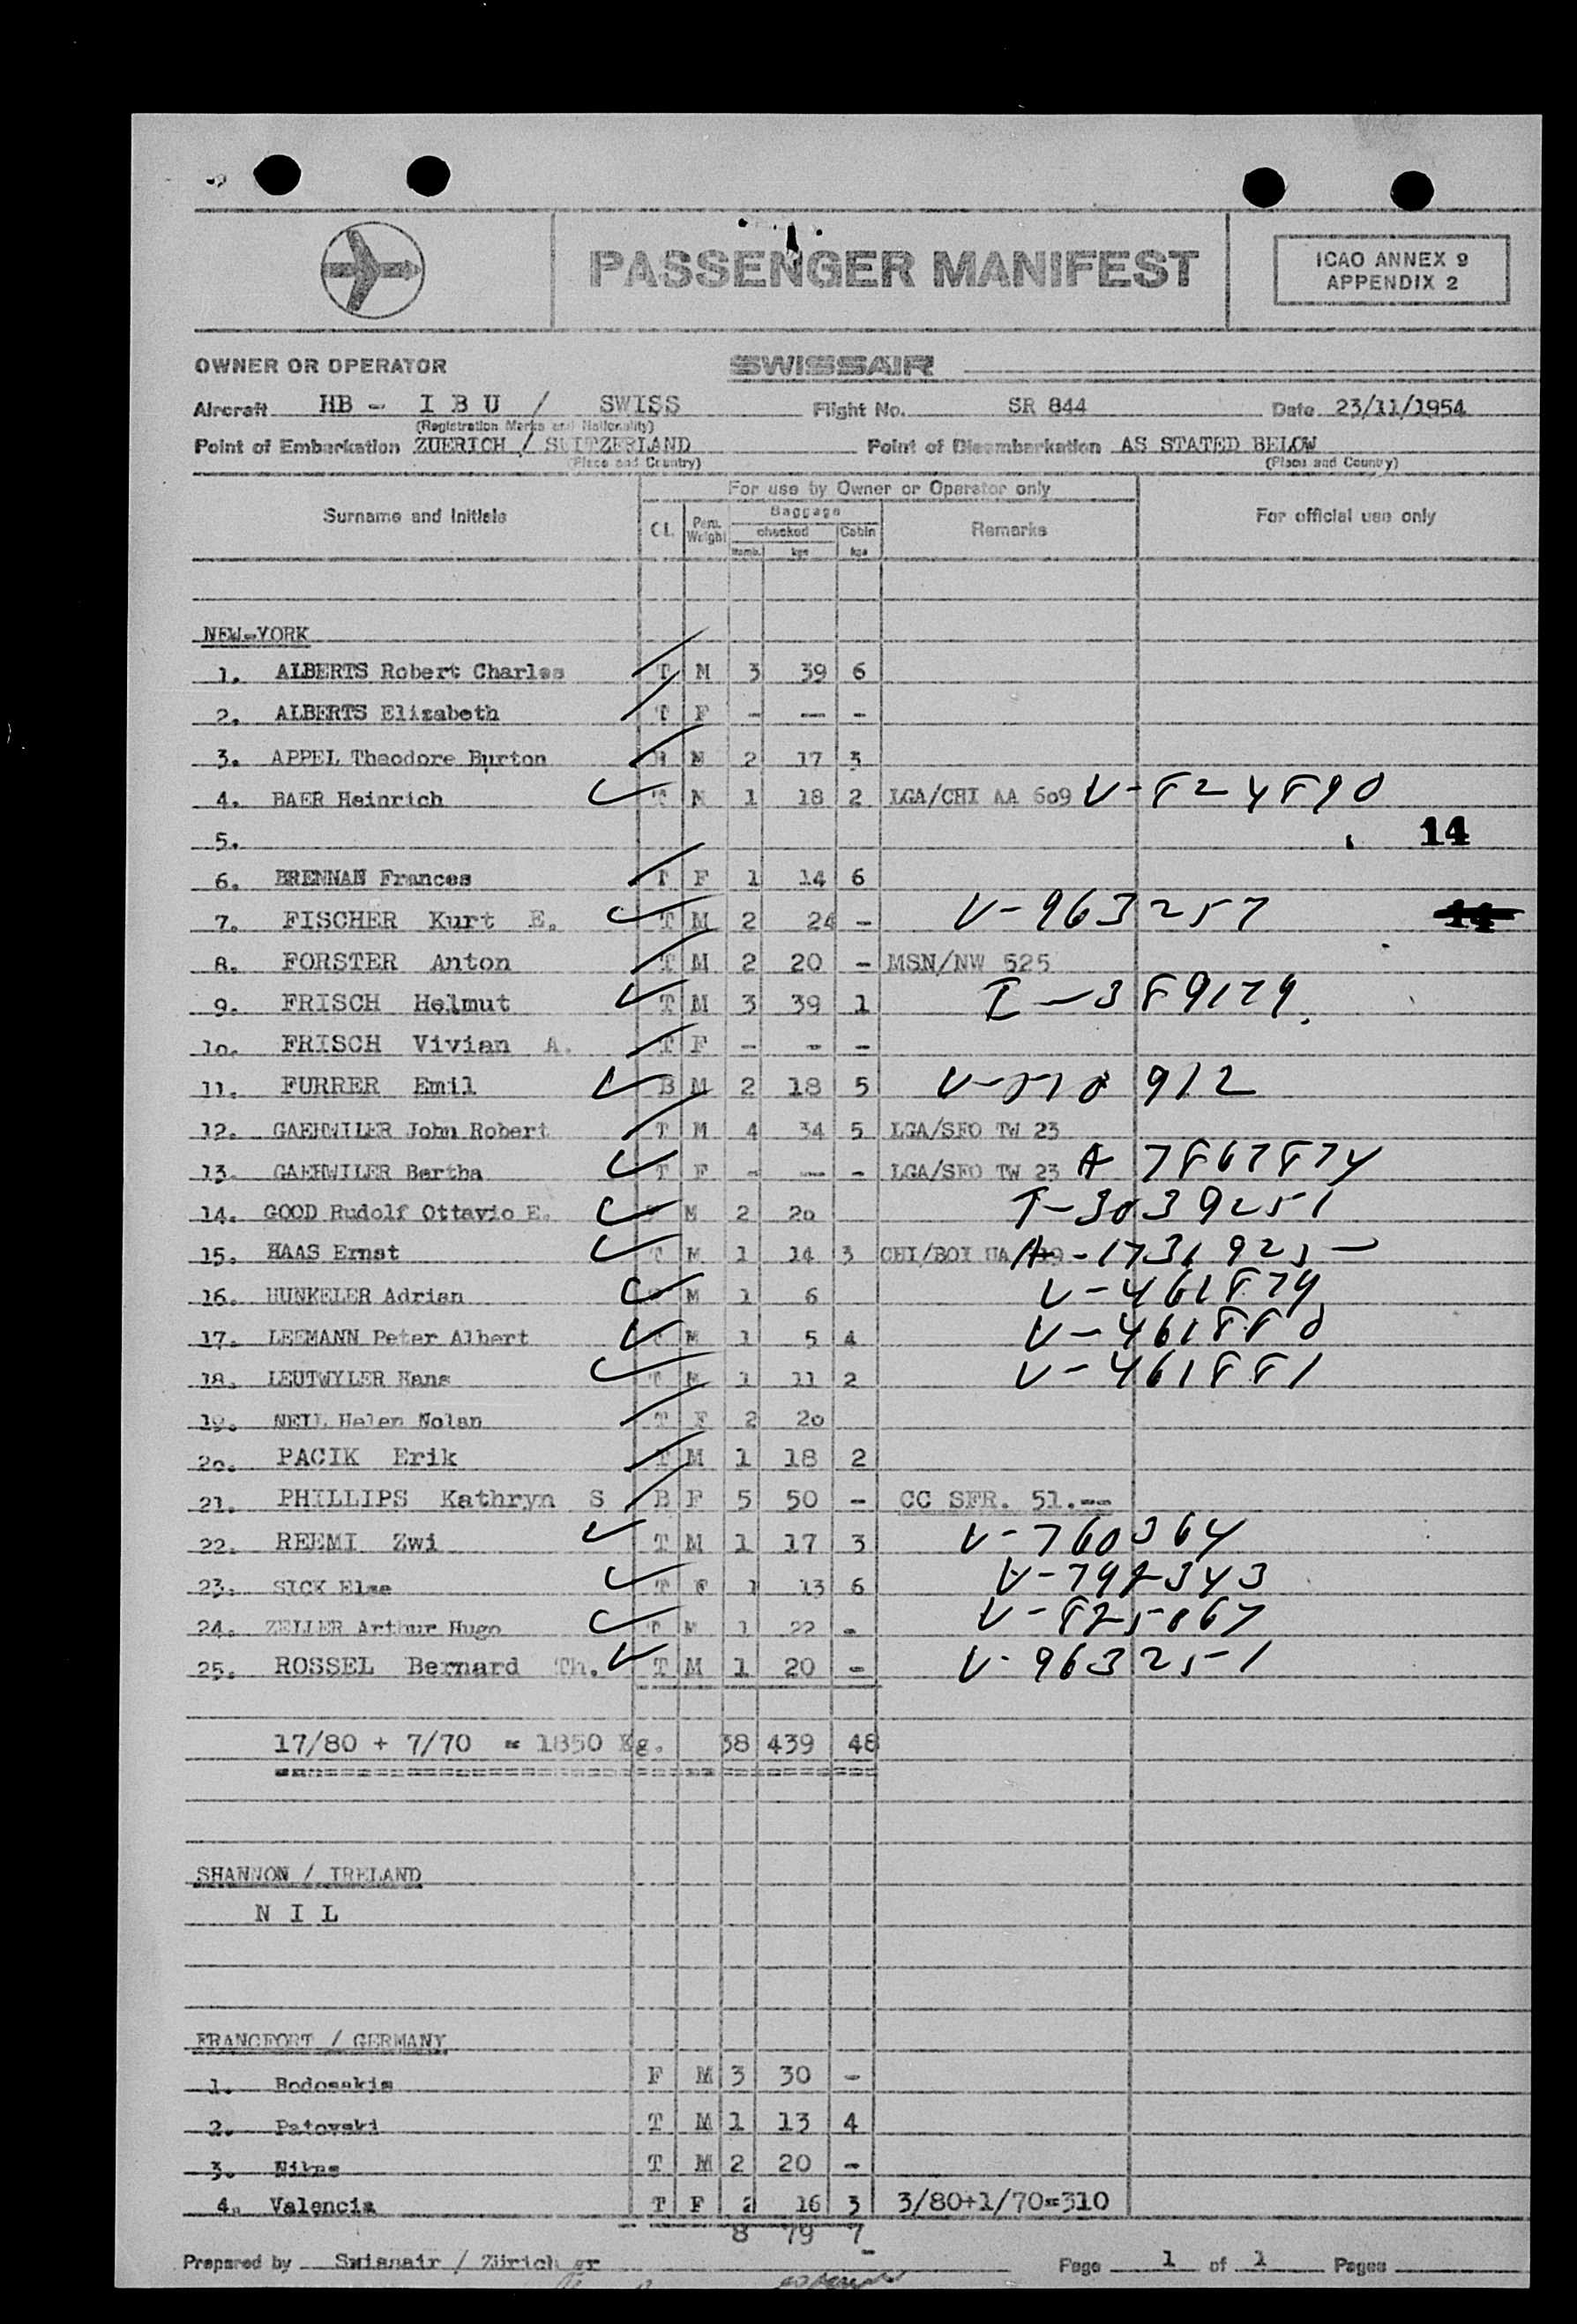 PASSENGER MANIFEST
ICAO ANNEX 9
APPENDIX 2
OWNER OR OPERATOR SWISSAIR
Aircraft HB - I B U / SWISS Flight No. SR 844 Date 23/11/1954
(Registration Marks and Nationality)
Point of Embarkation ZUERICH / SUITZERLAND Point of Disembarkation AS STATED BELOW
(Place and Country) (Place and Country)
For use by Owner or Operator only
Surname and Initials CL. Pers. Weight Baggage checked Numb. kgs Cabin kgs Remarks For official use only
NEW-YORK
1. ALBERTS Robert Charles T M 3 39 6
2. ALBERTS Elizabeth T F - - -
3. APPEL Theodore Burton M 2 17 3
4. BAER Heinrich T M 1 18 2 LGA/CHI AA 609 V-824890
5. 14
6. BRENNAN Frances T F 1 14 6
7. FISCHER Kurt E. T M 2 24 - V-963257 14
8. FORSTER Anton T M 2 20 - MSN/NW 525
9. FRISCH Helmut T M 3 39 1 I-389179
10. FRISCH Vivian A. T F - - -
11. FURRER Emil B M 2 18 5 912
12. GAEHWILER John Robert T M 4 34 5 LGA/SFO TW 23
13. GAEHWILER Bertha T F - - - LGA/SFO TW 23 A 7867874
14. GOOD Rudolf Ottavio E. M 2 20 T-3039251
15. HAAS Ernst T M 1 14 3 CHI/BOI UA
16. HUNKELER Adrian M 1 6 V-461879
17. LEEMANN Peter Albert T M 1 5 4 V-461880
18. LEUTWYLER Hans T M 1 11 2 V-461881
19. NEIL Helen Nolan T F 2 20
20. PACIK Erik T M 1 18 2
21. PHILLIPS Kathryn S B F 5 50 - CC SFR. 51.--
22. REEMI Zwi T M 1 17 3 V-760364
23. SICK Else T F 1 13 6 V-798343
24. ZELLER Arthur Hugo T M 1 22 - V-825067
25. ROSSEL Bernard Th. T M 1 20 - V-963251
17/80 + 7/70 = 1850 Kg. 38 439 48
SHANNON / IRELAND
N I L
FRANCFORT / GERMANY
1. Bodosakis F M 3 30 -
2. Patovski T M 1 13 4
3. T M 2 20 -
4. Valencia T F 2 16 3 3/80+1/70=310
8 79 7
Prepared by Swissair / Zürich gr Page 1 of 1 Pages